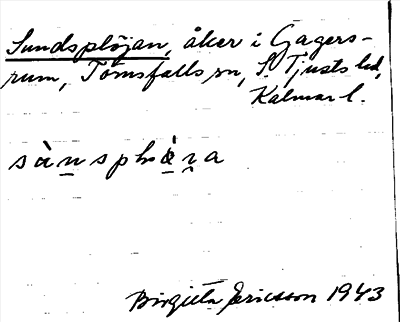 Sundsplöjan, åker i Gagers-
rum, Törnsfalls sn, S. Tjusts hd,
Kalmar l.
Birgitta Ericsson 1943